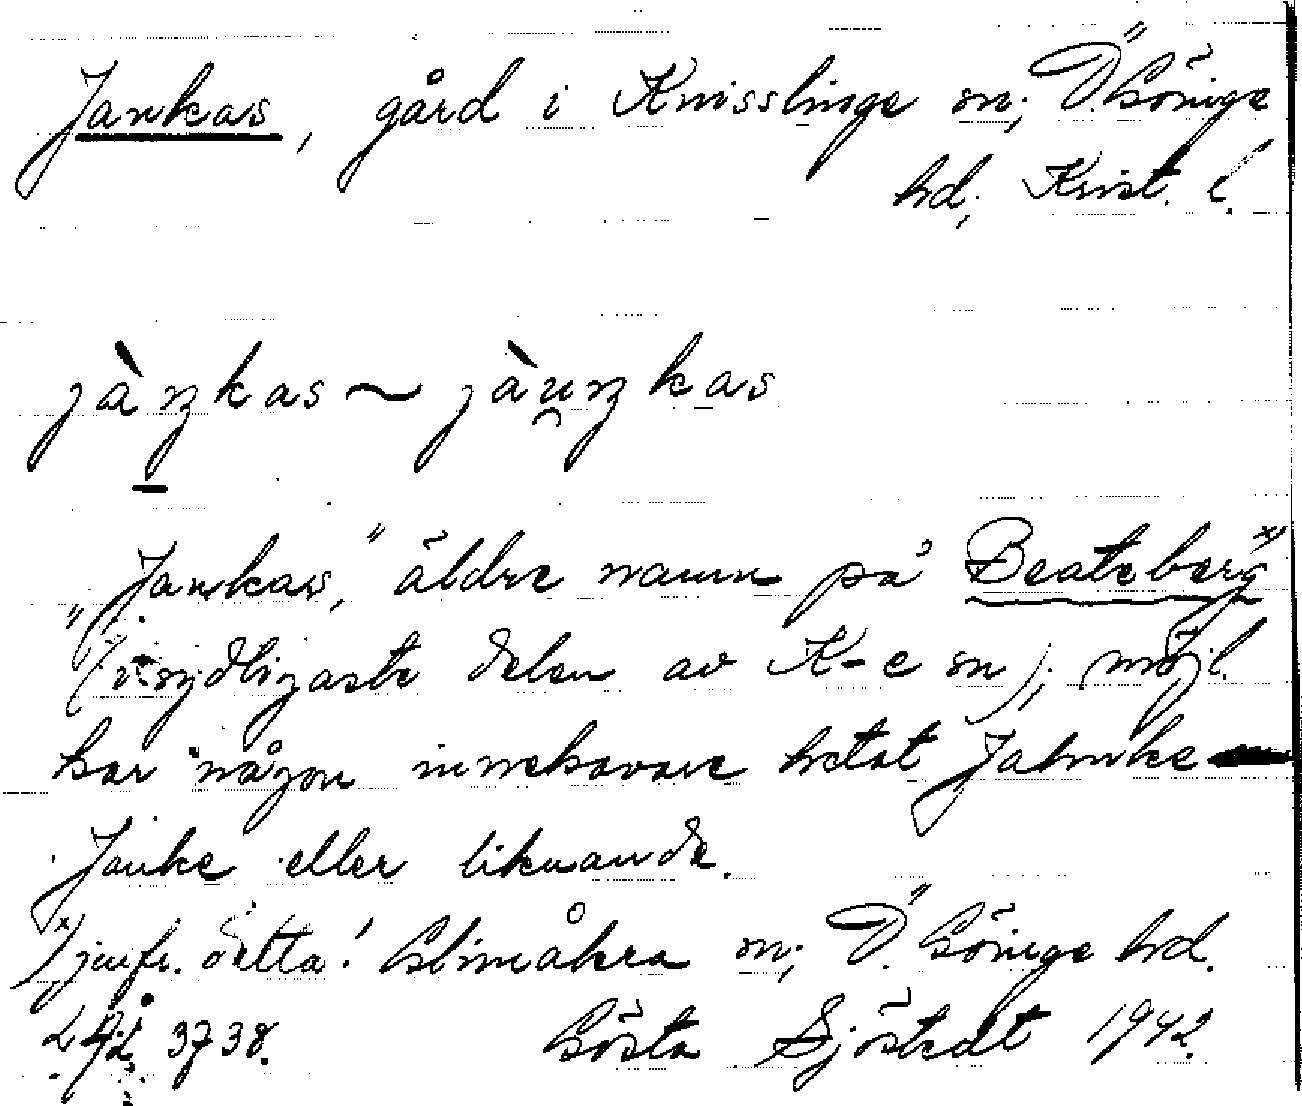 Jankas, gård i Knisslinge sn; Ö. Göinge
hd; Krist. l.
jàŋkas ~ jàu̯ŋkas
"Jankas," äldre namn på Beateberg x)
(i sydligaste delen av K-e sn); möjl.
har någon innehavare hetat Jahnke
Janke eller liknande.
x) jmfr. detta! Glimåkra sn; Ö. Göinge hd.
3738. Gösta Sjöstedt 1942.